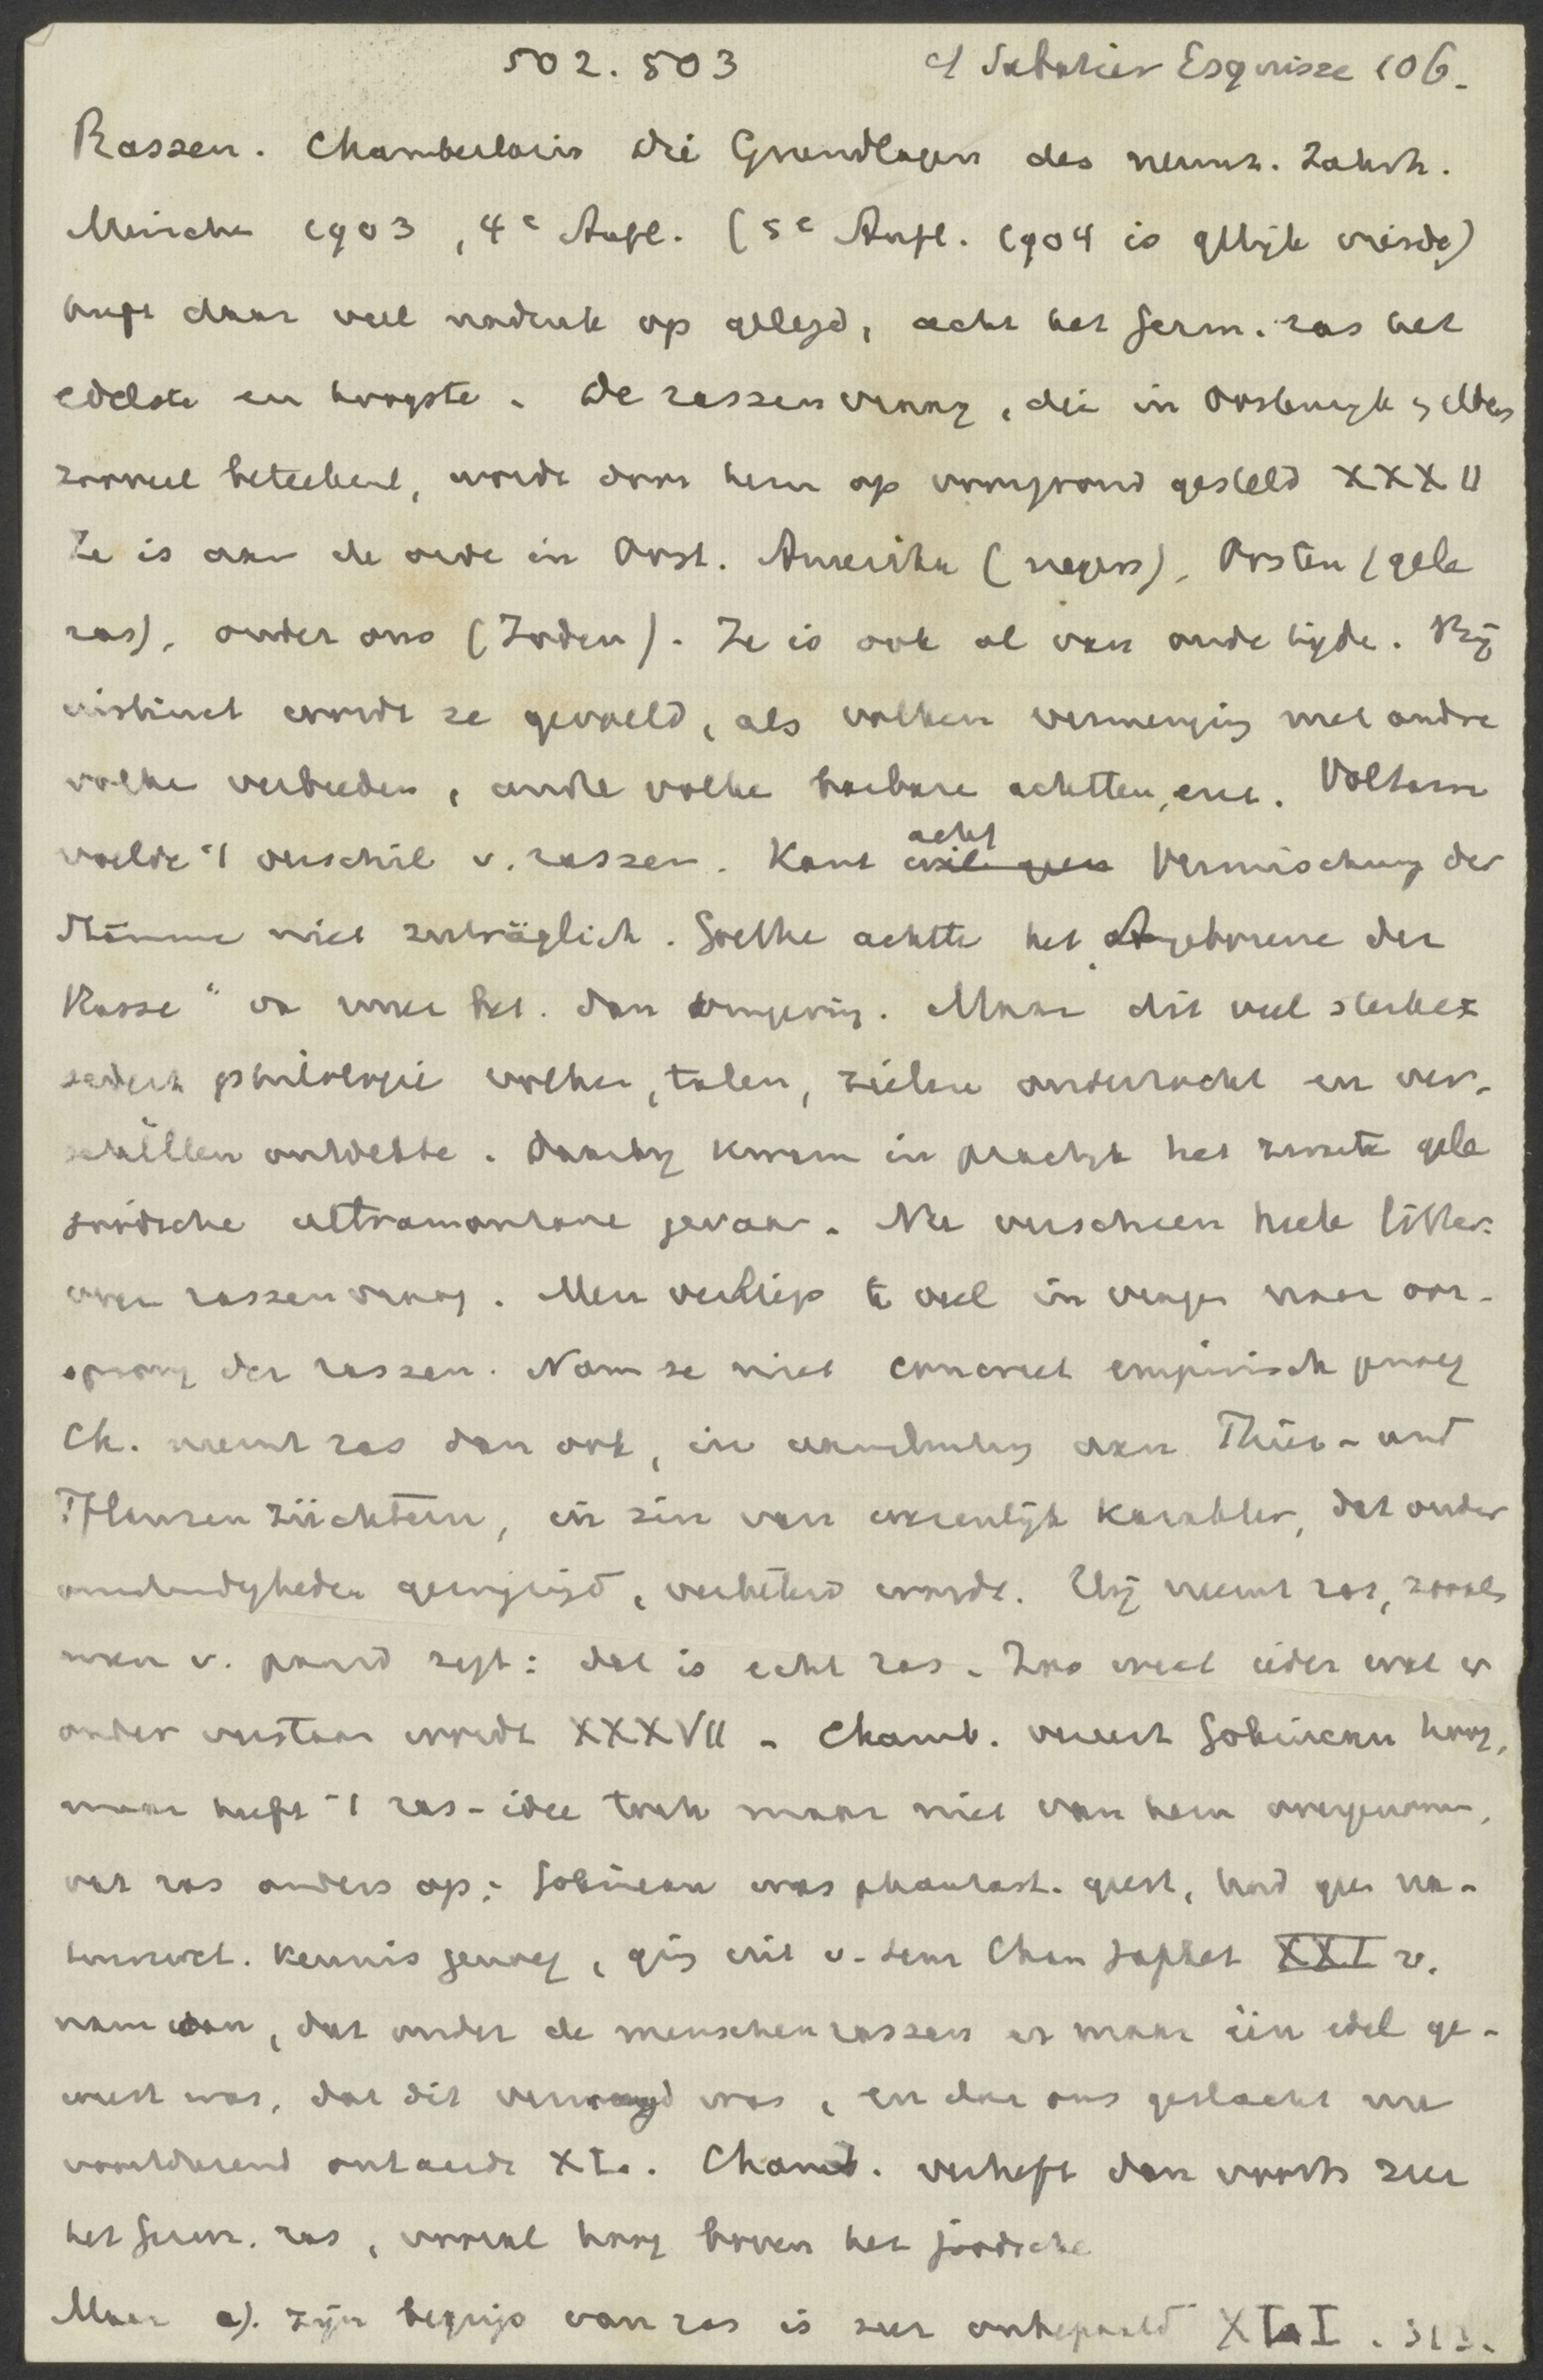 502. 503 cf Sabatier Esquisse 106.
Rassen. Chamberlain Die Grundlagen des neunz. Jahrh.
München 1903, 4e Aufl. (5e Aufl. 1904 is gelijk vierde)
heeft daar veel nadruk op gelegd, acht het Germ. ras het
edelste en hoogste. De rassenvraag, die in Oostenrijk
zooveel beteekent, wordt door hem op voorgrond gesteld XXXII
Ze is aan de orde in Oost. Amerika (negers), Oosten (gele
ras), onder ons (Joden). Ze is ook al van oude tijde. Bij
instinct werdt ze gevoeld, als volken vermenging met andre
volke verbieden, andre volke barbare achtten, enz. Voltaire
voelde 't verschil v. rassen. Kant acht Vermischung der
Stämme niet zuträglich. Goethe achtte het „Angeborene der
Rasse" va meer bet. dan omgeving. Maar dit veel sterker
sedert philologie volken, talen, zielen onderzocht en ver-
schillen ontdekte. Daarbij kwam in practijk het zwarte gele
joodsche ultramontane gevaar. Nu verscheen heele litter.
over rassenvraag. Men verliep te veel in vragen naar oor-
sprong der rassen. Nam ze niet concreet empirisch genoeg
Ch. neemt ras dan ook, in aansluiting aan Thier- und
Pflanzenzüchtern, in zin van wezenlijk karakter, dat onder
omstandigheden gewijzigd, verbeterd wordt. Hij neemt ras, zooals
men v. paard zegt: dat is echt ras. Zoo weet ieder wat er
onder verstaan wordt XXXVII - Chamb. vereert Gobineau hoog,
maar heeft 't ras-idee toch maar niet van hem overgenom.
vat ras anders op; Gobineau was phantast. geest, had geen na-
tuurwet. kennis genoeg, ging uit v. Sem Cham Japhet XXI v.
nam aan, dat onder de menschenrassen er maar één edel ge-
weest was, dat dit vermengd was, en dat ons geslacht nu
voortdurend ontaardt XL. Chamb. verheft dan voorts zeer
het Germ. ras, vooral hoog boven het joodsche
Maar a). zijn begrip van ras is zeer onbepaald XLI. 313.